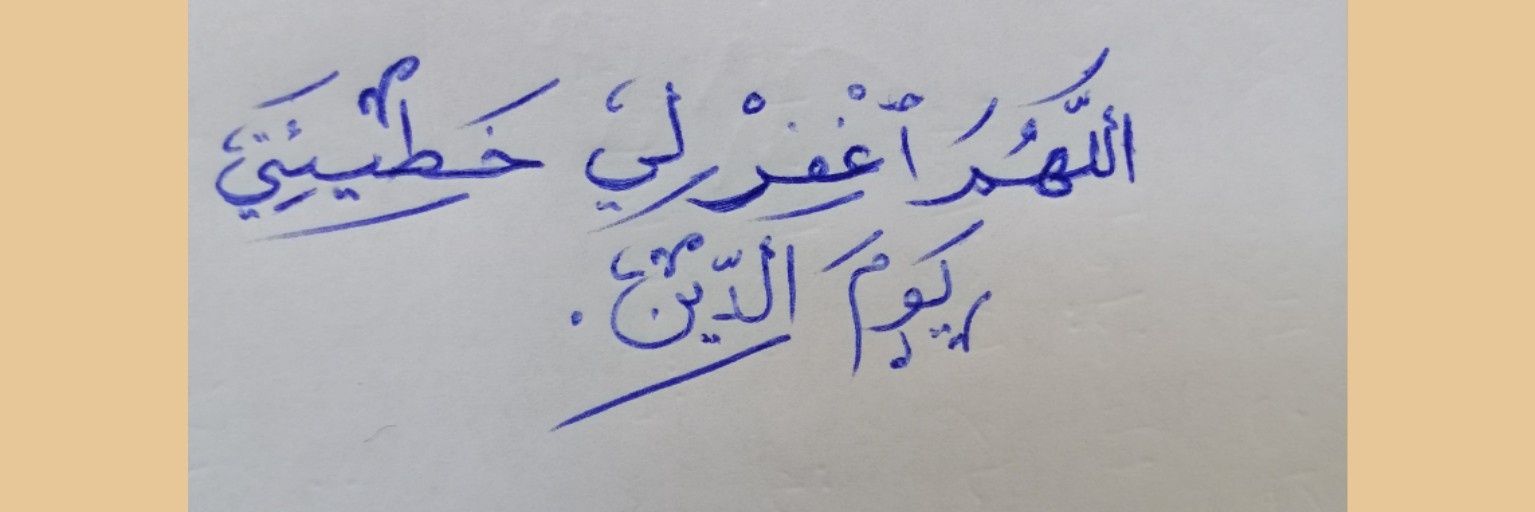 اللَّهُمَ ٱغْفِرْ لِي خَطِيئَتِي
يَومَ الدِّينِ.